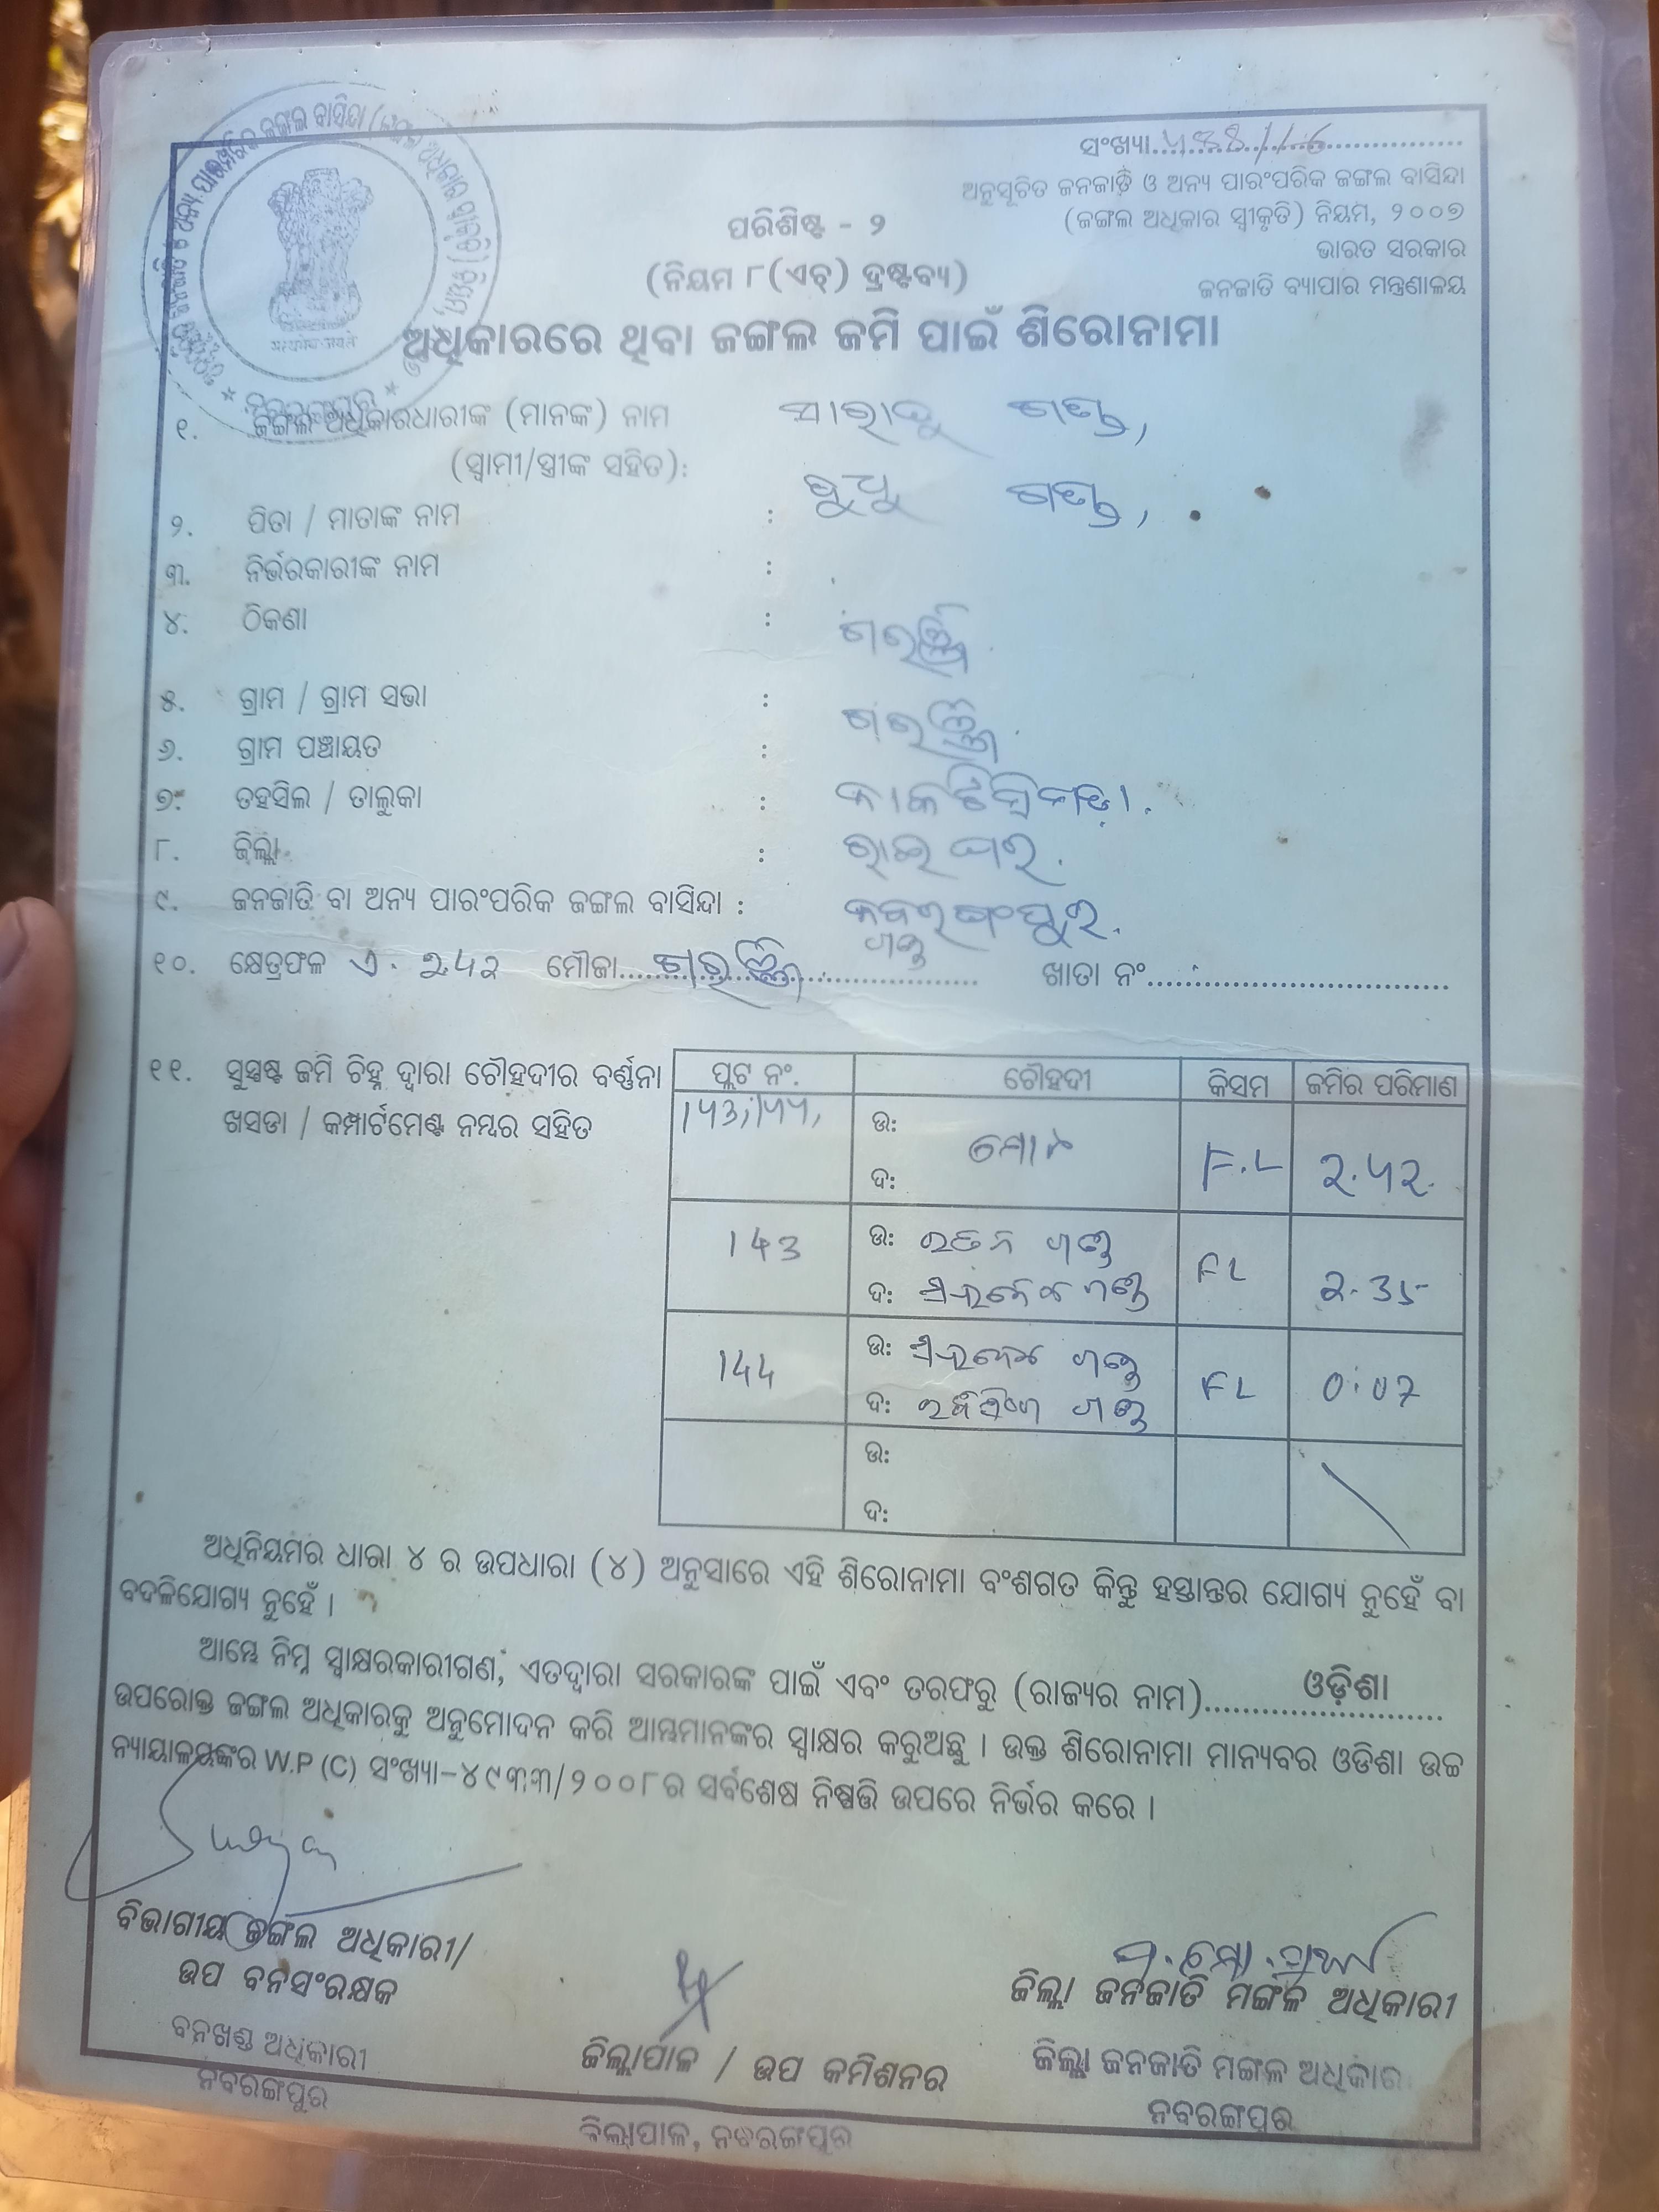 ସଂଖ୍ୟା
ଅନୁସୂଚିତ ଜନଜାତି ଓ ଅନ୍ୟ ପାରଂପରିକ ଜଙ୍ଗଲ ବାସିନ୍ଦା
(ଜଙ୍ଗଲ ଅଧିକାର ସ୍ୱୀକୃତି) ନିୟମ, ୨୦୦୭
ଭାରତ ସରକାର
ଜନଜାତି ବ୍ୟାପାର ମନ୍ତ୍ରଣାଳୟ
ପରିଶିଷ୍ଟ - ୨
(ନିୟମ ୮(ଏଚ୍) ଦ୍ରଷ୍ଟବ୍ୟ)
ଅଧିକାରରେ ଥିବା ଜଙ୍ଗଲ ଜମି ପାଇଁ ଶିରୋନାମା
୧. ଜଙ୍ଗଲ ଅଧିକାରଧାରୀଙ୍କ (ମାନଙ୍କ) ନାମ ଗଣ୍ଡ,
(ସ୍ୱାମୀ/ସ୍ତ୍ରୀଙ୍କ ସହିତ):
୨. ପିତା / ମାତାଙ୍କ ନାମ : ବୁଧୁ ଗଣ୍ଡ,
୩. ନିର୍ଭରକାରୀଙ୍କ ନାମ :
୪. ଠିକଣା :
୫. ଗ୍ରାମ / ଗ୍ରାମ ସଭା :
୬. ଗ୍ରାମ ପଞ୍ଚାୟତ :
୭. ତହସିଲ / ତାଲୁକା :
୮. ଜିଲ୍ଲା : ରାଇଘର.
୯. ଜନଜାତି ବା ଅନ୍ୟ ପାରଂପରିକ ଜଙ୍ଗଲ ବାସିନ୍ଦା : ନବରଙ୍ଗପୁର.
ଗଣ୍ଡ
୧୦. କ୍ଷେତ୍ରଫଳ ଏ. ୨.୪୨ ମୌଜା ଖାତା ନଂ
୧୧. ସୁସ୍ପଷ୍ଟ ଜମି ଚିହ୍ନ ଦ୍ୱାରା ଚୌହଦୀର ବର୍ଣ୍ଣନା
ଖସଡା / କମ୍ପାର୍ଟମେଣ୍ଟ ନମ୍ବର ସହିତ
ପ୍ଲଟ ନଂ. ଚୌହଦୀ କିସମ ଜମିର ପରିମାଣ
ଉ: ମୋଟ F.L ୨.୪୨.
ଦ:
143 ଉ: ରତନ ଗଣ୍ଡ FL 2.35
ଦ: ଗଣ୍ଡ
144 ଉ: ଗଣ୍ଡ FL 0.07
ଦ: ଗଣ୍ଡ
ଉ:
ଦ:
ଅଧିନିୟମର ଧାରା ୪ ର ଉପଧାରା (୪) ଅନୁସାରେ ଏହି ଶିରୋନାମା ବଂଶଗତ କିନ୍ତୁ ହସ୍ତାନ୍ତର ଯୋଗ୍ୟ ନୁହେଁ ବା
ବଦଳିଯୋଗ୍ୟ ନୁହେଁ ।
ଆମ୍ଭେ ନିମ୍ନ ସ୍ୱାକ୍ଷରକାରୀଗଣ, ଏତଦ୍ୱାରା ସରକାରଙ୍କ ପାଇଁ ଏବଂ ତରଫରୁ (ରାଜ୍ୟର ନାମ) ଓଡ଼ିଶା
ଉପରୋକ୍ତ ଜଙ୍ଗଲ ଅଧିକାରକୁ ଅନୁମୋଦନ କରି ଆମ୍ଭମାନଙ୍କର ସ୍ୱାକ୍ଷର କରୁଅଛୁ । ଉକ୍ତ ଶିରୋନାମା ମାନ୍ୟବର ଓଡିଶା ଉଚ୍ଚ
ନ୍ୟାୟାଳୟଙ୍କର W.P (C) ସଂଖ୍ୟା-୪୯୩୩/୨୦୦୮ର ସର୍ବଶେଷ ନିଷ୍ପତ୍ତି ଉପରେ ନିର୍ଭର କରେ ।
ବିଭାଗୀୟ ଜଙ୍ଗଲ ଅଧିକାରୀ/
ଉପ ବନସଂରକ୍ଷକ
ବନଖଣ୍ଡ ଅଧିକାରୀ
ନବରଙ୍ଗପୁର
ଜିଲ୍ଲାପାଳ / ଉପ କମିଶନର
ଜିଲ୍ଲାପାଳ, ନବରଙ୍ଗପୁର
ଜିଲ୍ଲା ଜନଜାତି ମଙ୍ଗଳ ଅଧିକାରୀ
ଜିଲ୍ଲା ଜନଜାତି ମଙ୍ଗଳ ଅଧିକାରୀ
ନବରଙ୍ଗପୁର